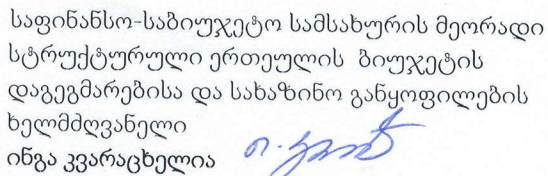 საფინანსო-საბიუჯეტო სამსახურის მეორადი
სტრუქტურული ერთეულის ბიუჯეტის
დაგეგმარებისა და სახაზინო განყოფილების
ხელმძღვანელი
ინგა კვარაცხელია